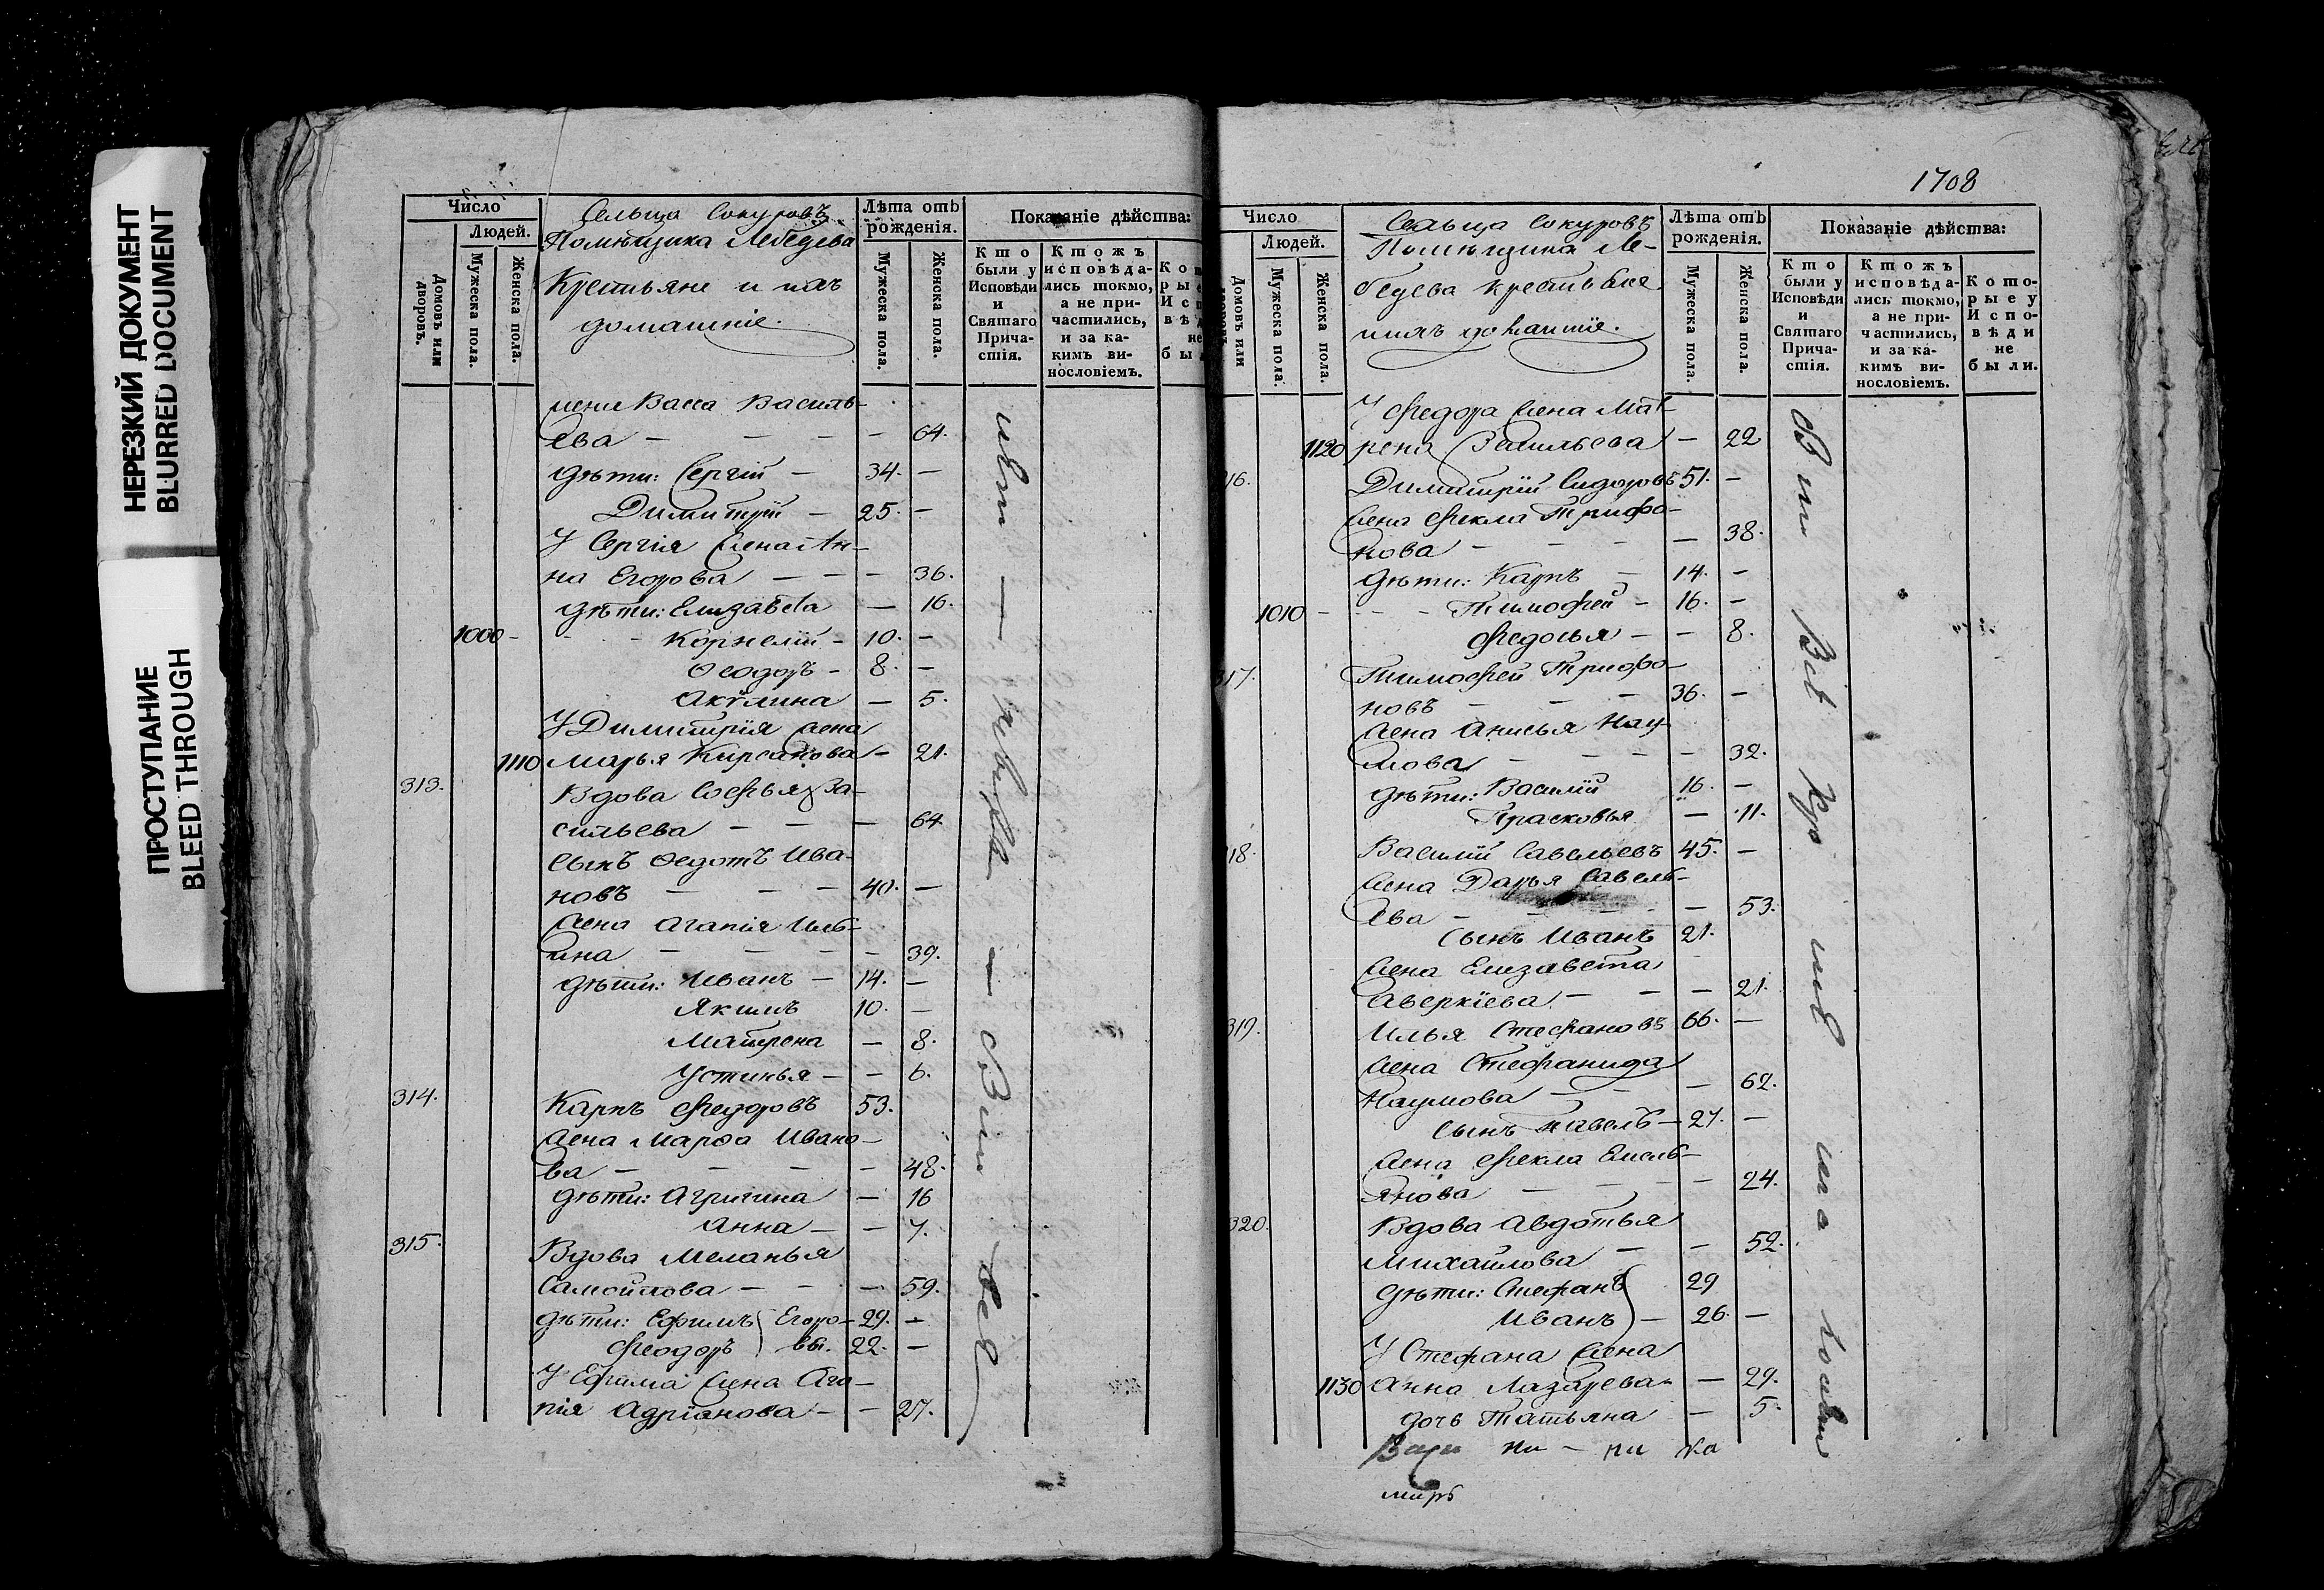 НЕРЕЗКИЙ ДОКУМЕНТ
BLURRED DOCUMENT
ПРОСТУПАНИЕ
BLEED THROUGH
Число
Людей.
Домовъ или дворовъ.
Мужеска пола.
Женска пола.
Сельца Сокуровъ
Помѣщика Лебедева
Крестьяне и ихъ
домашніе.
Лѣта отъ рожденія.
Мужеска пола.
Женска пола.
Показаніе дѣйства:
Кто были у Исповѣди и Святаго Причастія.
Ктожъ исповѣдались токмо, а не причастились, и за какимъ винословіемъ.
жена Васса Василь-
ева — — — — 64.
дѣти: Сергій — 34. —
Димитрій — 25. —
У Сергія жена Ан-
на Егорова — — — 36.
дѣти: Елизавета — 16.
1000 - Корнелій - 10. —
Ѳеодоръ - 8. —
Акулина — 5.
У Димитрія жена
1110 Марья Кирсанова — 21.
313. Вдова Софья Ва-
сильева — — — 64.
сынъ Ѳедотъ Ива-
новъ — — — 40. —
жена Агапія Иль-
ина — — — — 39.
дѣти: Иванъ — 14. —
Якимъ 10. —
Матрена — 8.
Устинья — — 6.
314. Карпъ Федоровъ 53.
жена Марѳа Ивано-
ва — — — — 48.
дѣти: Агрипина — 16
Анна — — 7.
315. Вдова Меланья
Самойлова — — — 59.
дѣти: Ефимъ Егоро- 29. —
Феодоръ вы. 22. —
У Ефима жена Ага-
пія Адріанова — — 27.
1708
Число
Людей.
Домовъ или дворовъ.
Мужеска пола.
Женска пола.
Сельца Сокуровъ
Помѣщика Ле-
бедева крестьяне
ихъ домашніе.
Лѣта отъ рожденія.
Мужеска пола.
Женска пола.
Показаніе дѣйства:
Кто были у Исповѣди и Святаго Причастія.
Ктожъ исповѣдались токмо, а не причастились, и за какимъ винословіемъ.
Которые у Исповѣди не были.
У Федора жена Мат-
1120 рена Васильева — 22
16. Димитрій Сидоровъ 51. —
жена Фекла Трифо-
нова — — — — 38.
дѣти: Карпъ — 14. —
1010 - - - Тимофей - 16. —
Федосья — — 8.
317. Тимофей Трифо-
новъ — — — 36. —
жена Анисья Нау-
мова — — — — 32.
дѣти: Василій 16. —
Прасковья — 11.
18. Василій Савельевъ 45. —
жена Дарья Савель-
ева — — — — 53.
сынъ Иванъ 21.
жена Елизавета
Аверкіева — — — 21.
319. Илья Стефановъ 66. —
жена Стефанида
Наумова — — — 62.
сынъ Павелъ — 27. —
жена Фекла Емель-
янова — — — 24.
320. Вдова Авдотья
Михайлова — — 52.
дѣти: Стефанъ 29
Иванъ — 26. —
У Стефана жена
1130 Анна Лазарева — 29.
дочь Татьяна — 5.